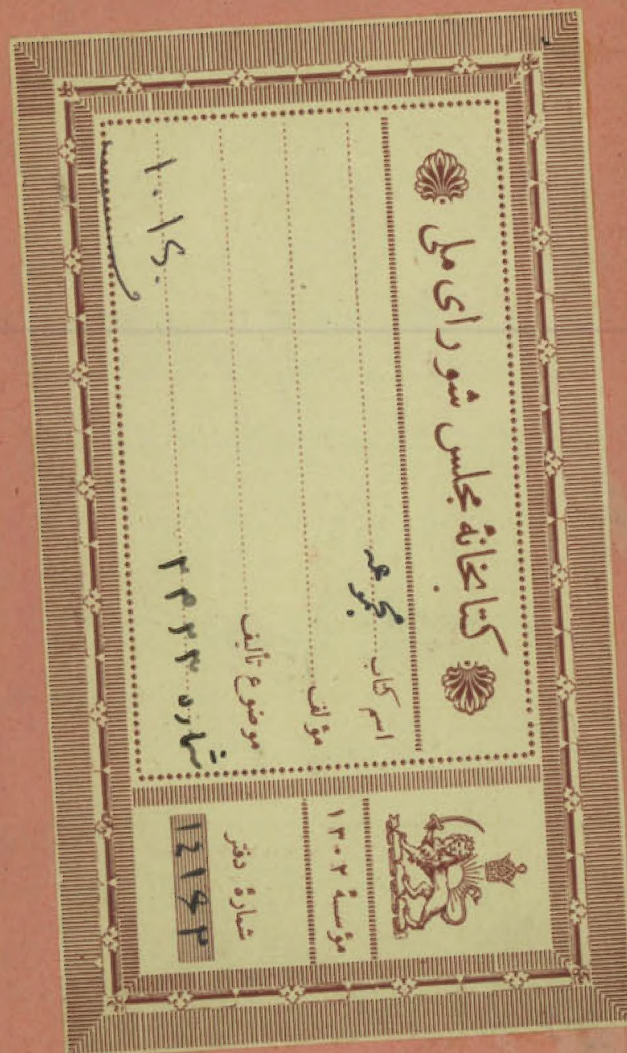 کتابخانهٔ مجلس شورای ملی
اسم کتاب مجموعه
مؤلف
موضوع تألیف
شماره ۳۴۳۳
مؤسسهٔ ۱۳۰۲
شمارهٔ دفتر